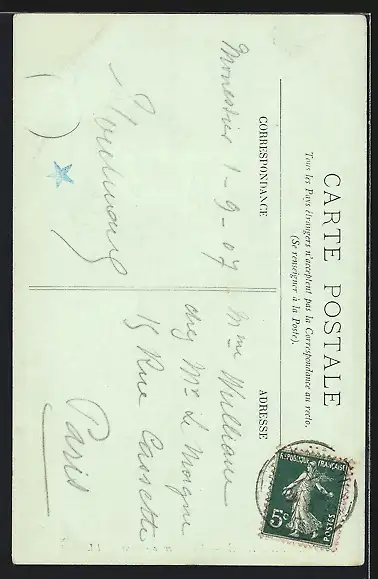 CARTE POSTALE
Tous les Pays étrangers n'acceptent pas la Correspondance au recto.
(Se renseigner à la Poste).
CORRESPONDANCE
ADRESSE
Monestier 1-9-07
Mme Wulliame
chez Mr Le Moigne
15 Rue Cassette
Paris
REPUBLIQUE FRANÇAISE
5c
POSTES